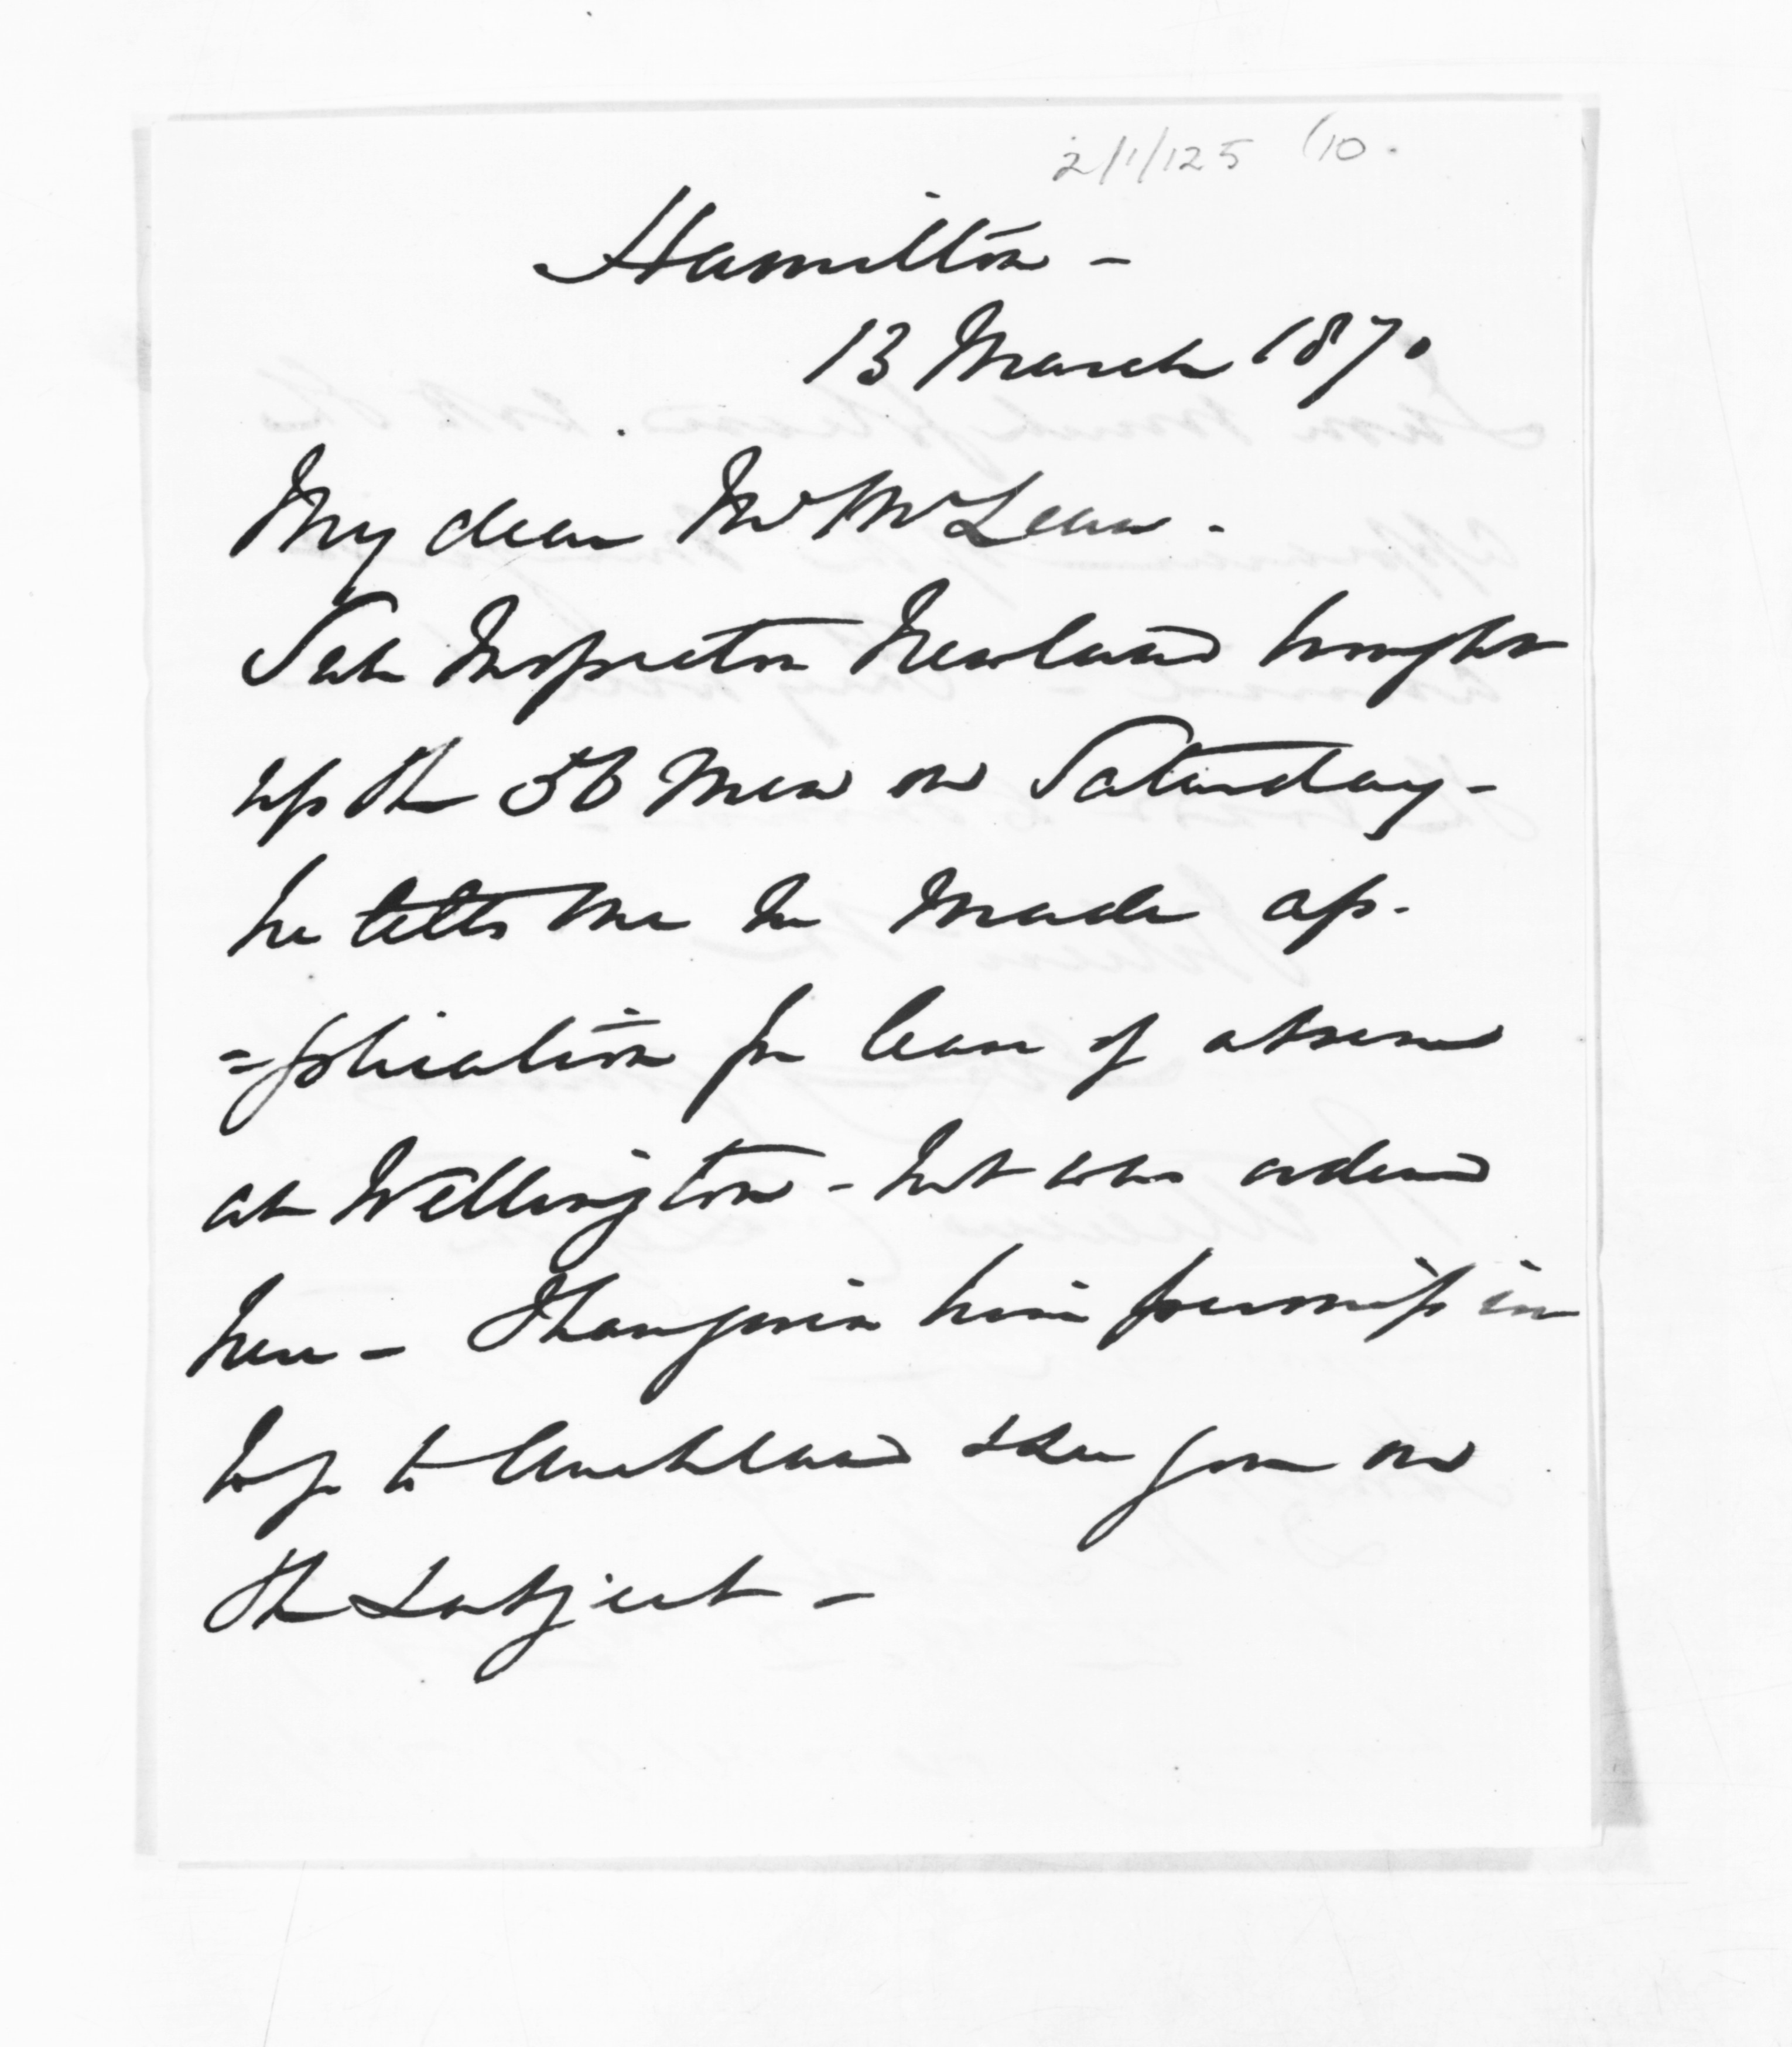 2/1/125 (10.
Hamilton -
13 March 1870
My dear Mr McLean.
Sub Inspector Newland brought
up the 56 men on Saturday -
he tells me he made ap.
=plication for leave of absence
at Wellington - but was ordered
here - I have given him permission
to go to Auckland & see you on
the subject -